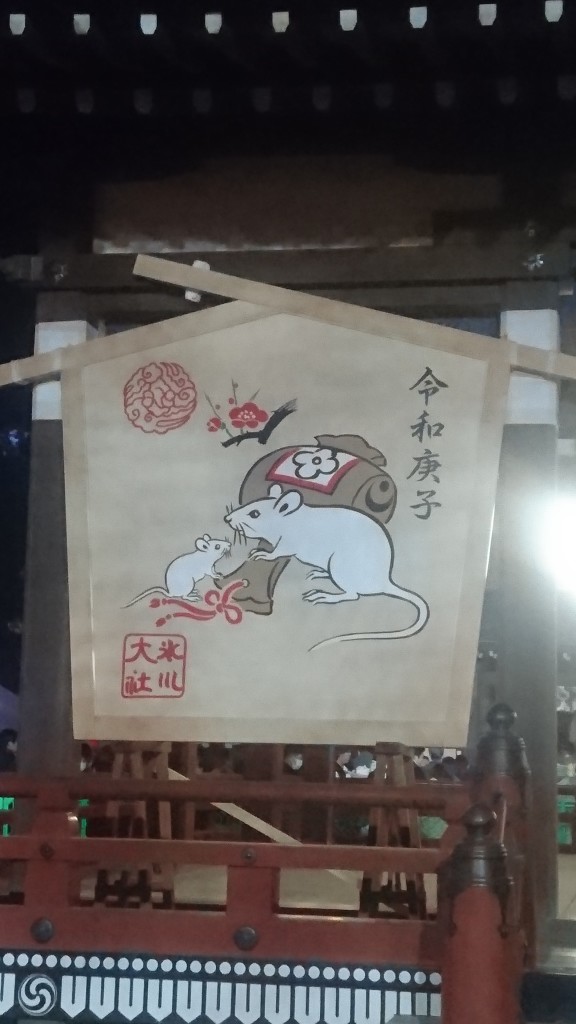 令和庚子
氷川
大社